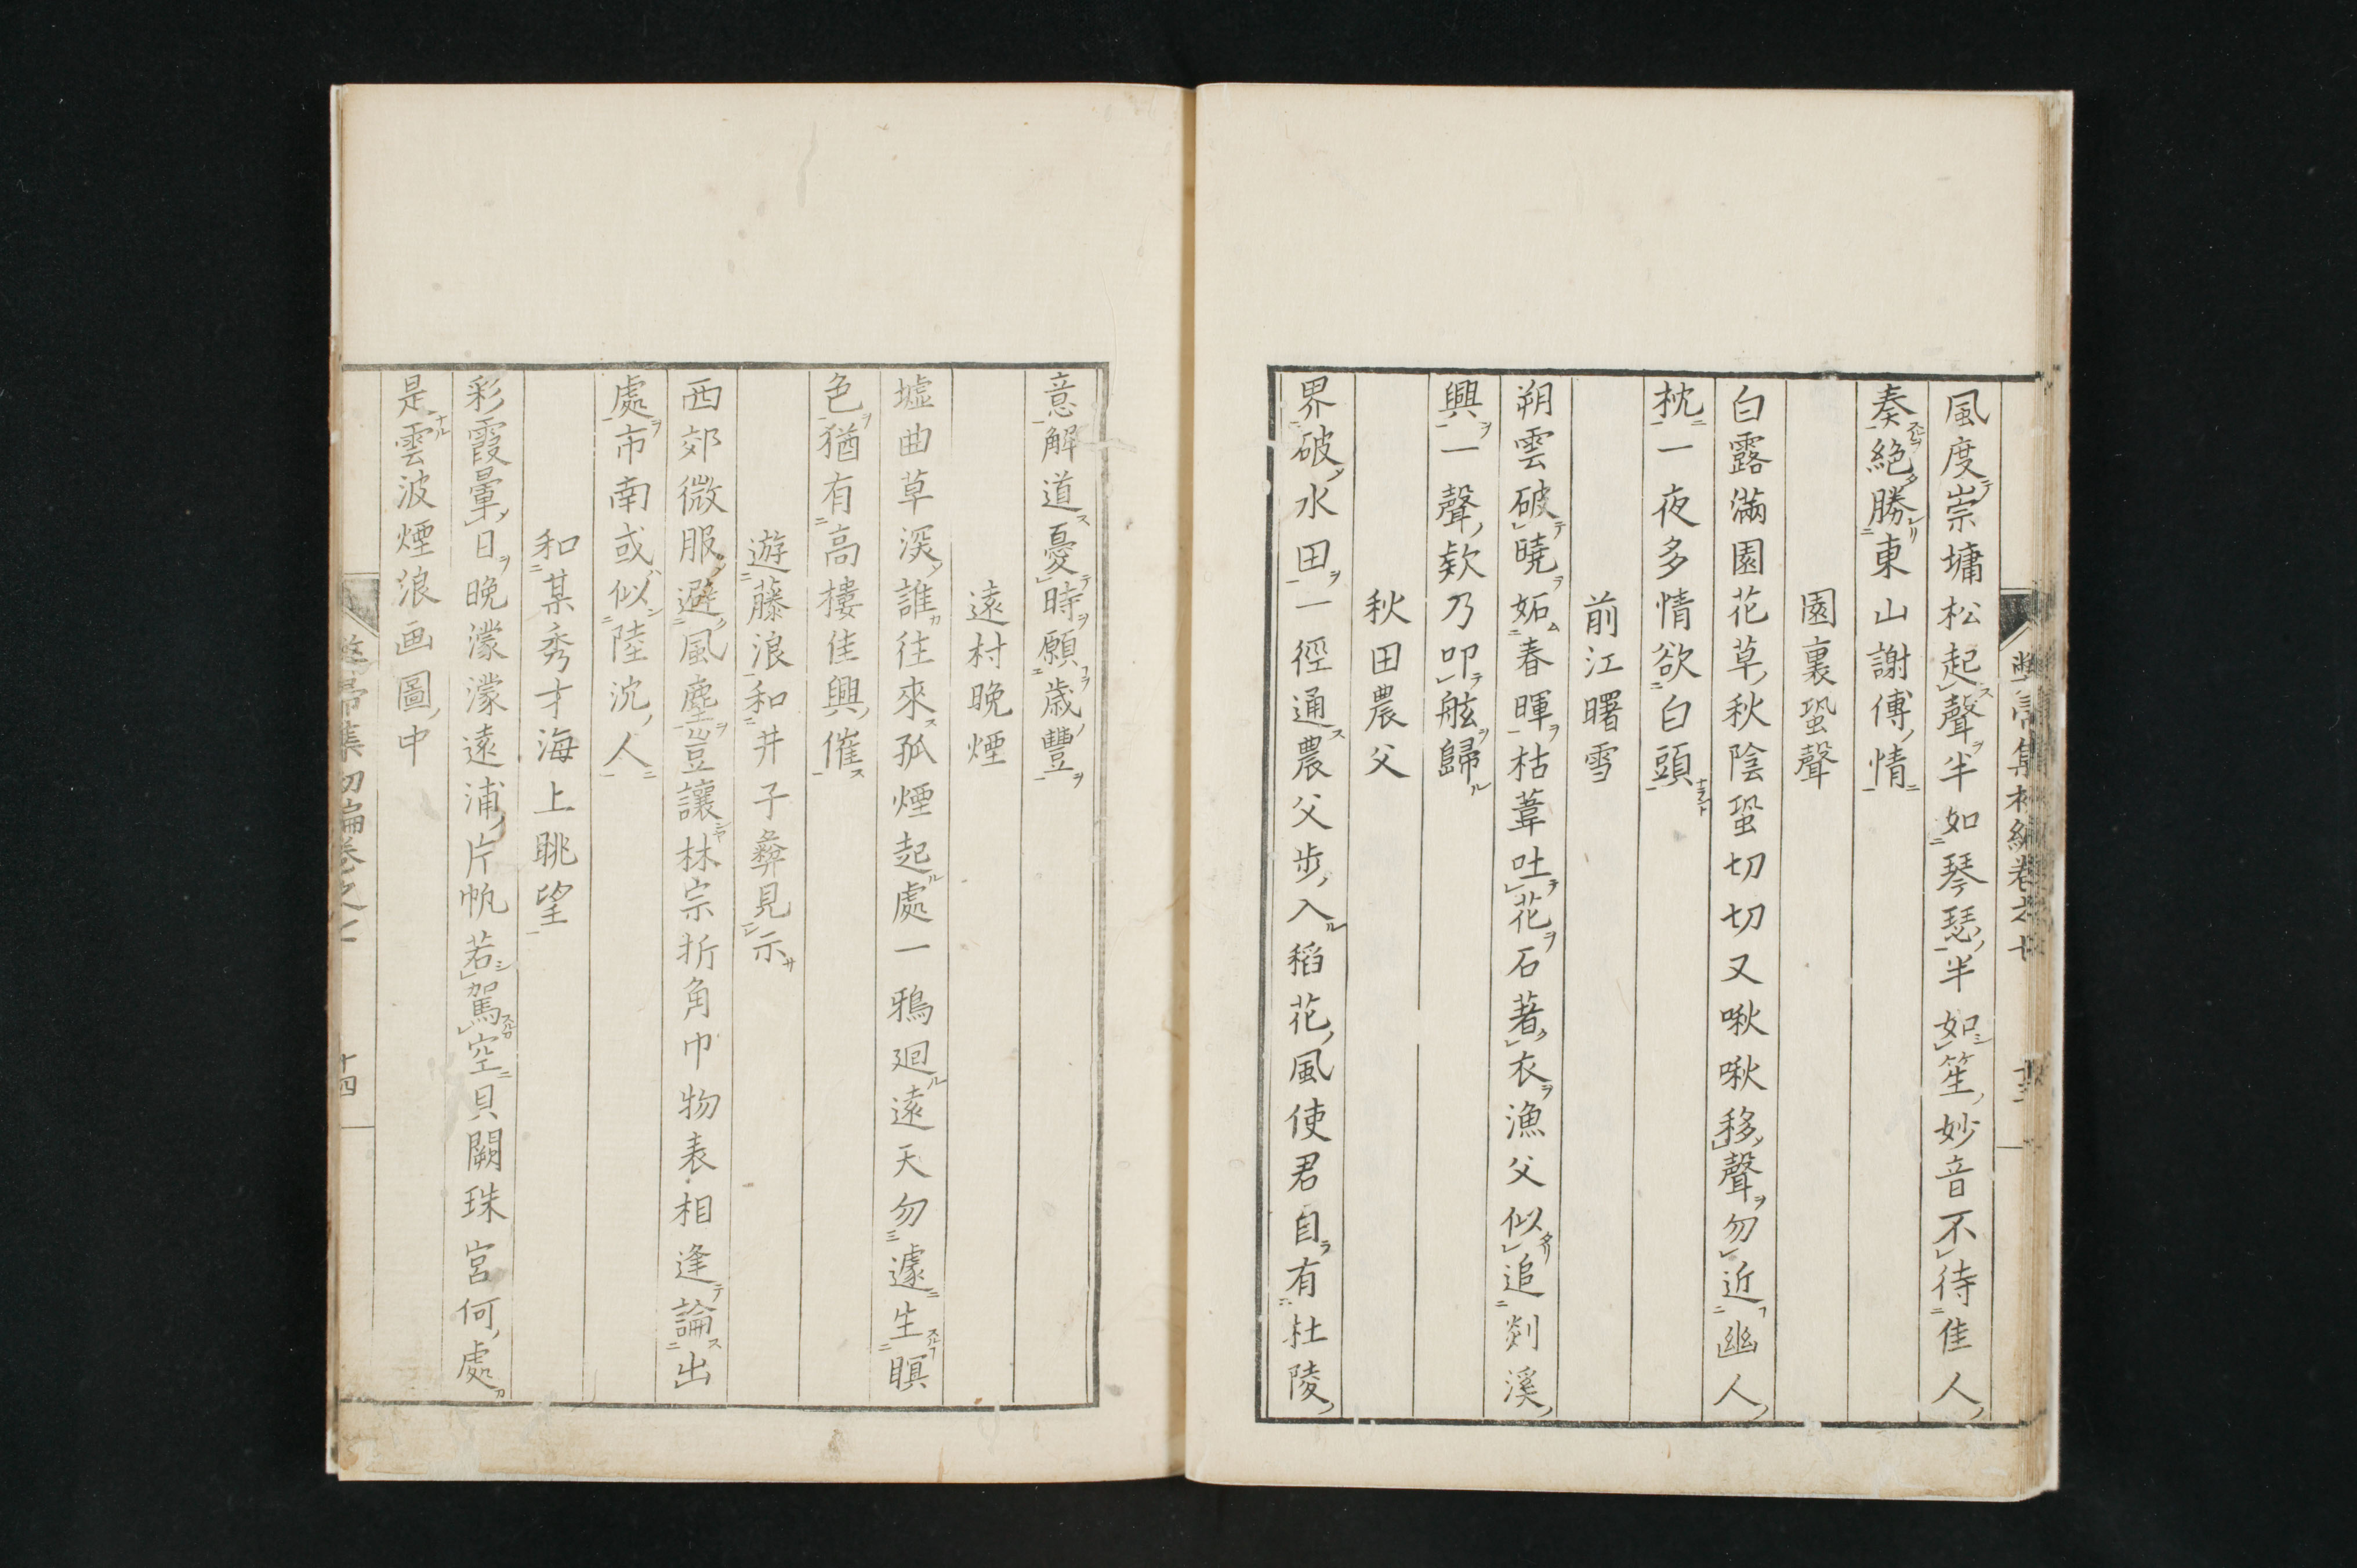 風度崇墉松起聲半如琴瑟半如笙妙音不待佳人
奏絕勝東山謝傅情
園裏蛩聲
白露滿園花草秋陰蛩切切又啾啾移聲勿近幽人
枕一夜多情欲白頭
前江曙雪
朔雲破曉妬春暉枯葦吐花石著衣漁父似追剡溪
興一聲欸乃叩舷歸
秋田農父
界破水田一徑通農父步入稻花風使君自有杜陵
意解道憂時願歳豐
遠村晩煙
墟曲草深誰往來孤煙起處一鴉廻遠天勿遽生瞑
色猶有高樓佳興催
遊藤浪和井子彜見示
西郊微服避風塵豈讓林宗折角巾物表相逢論出
處市南或似陸沈人
和某秀才海上眺望
彩霞暈日晩濛濛遠浦片帆若駕空貝闕珠宮何處
是雲波煙浪画圖中
集初編卷之七
十四